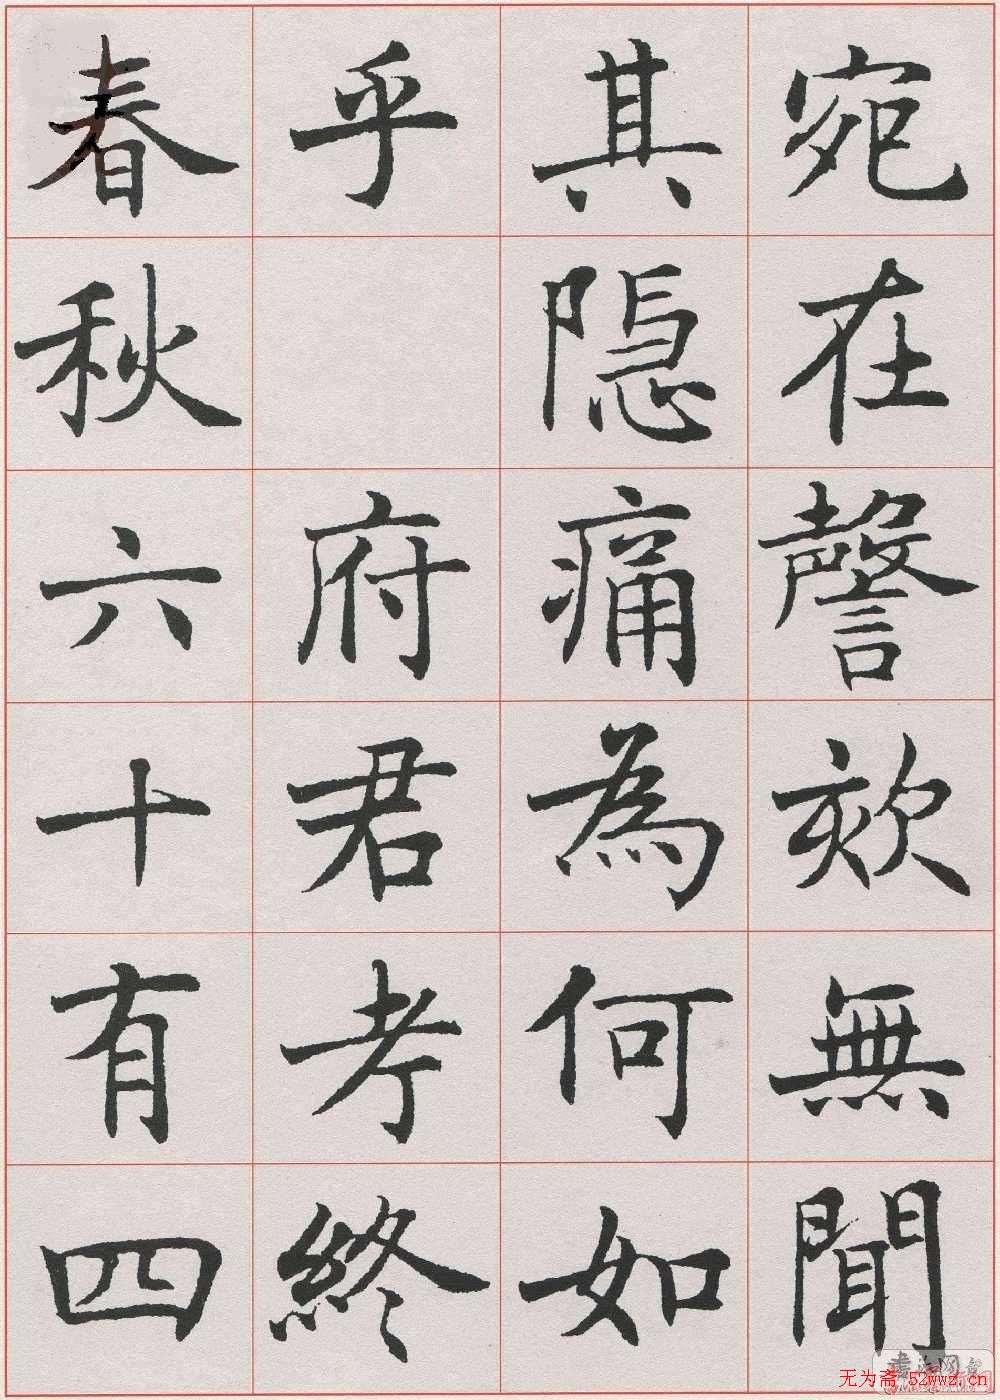 宛在謦欬無聞
其隐痛為何如
乎 府君考終
春秋六十有四
无为斋 52wwz.cn